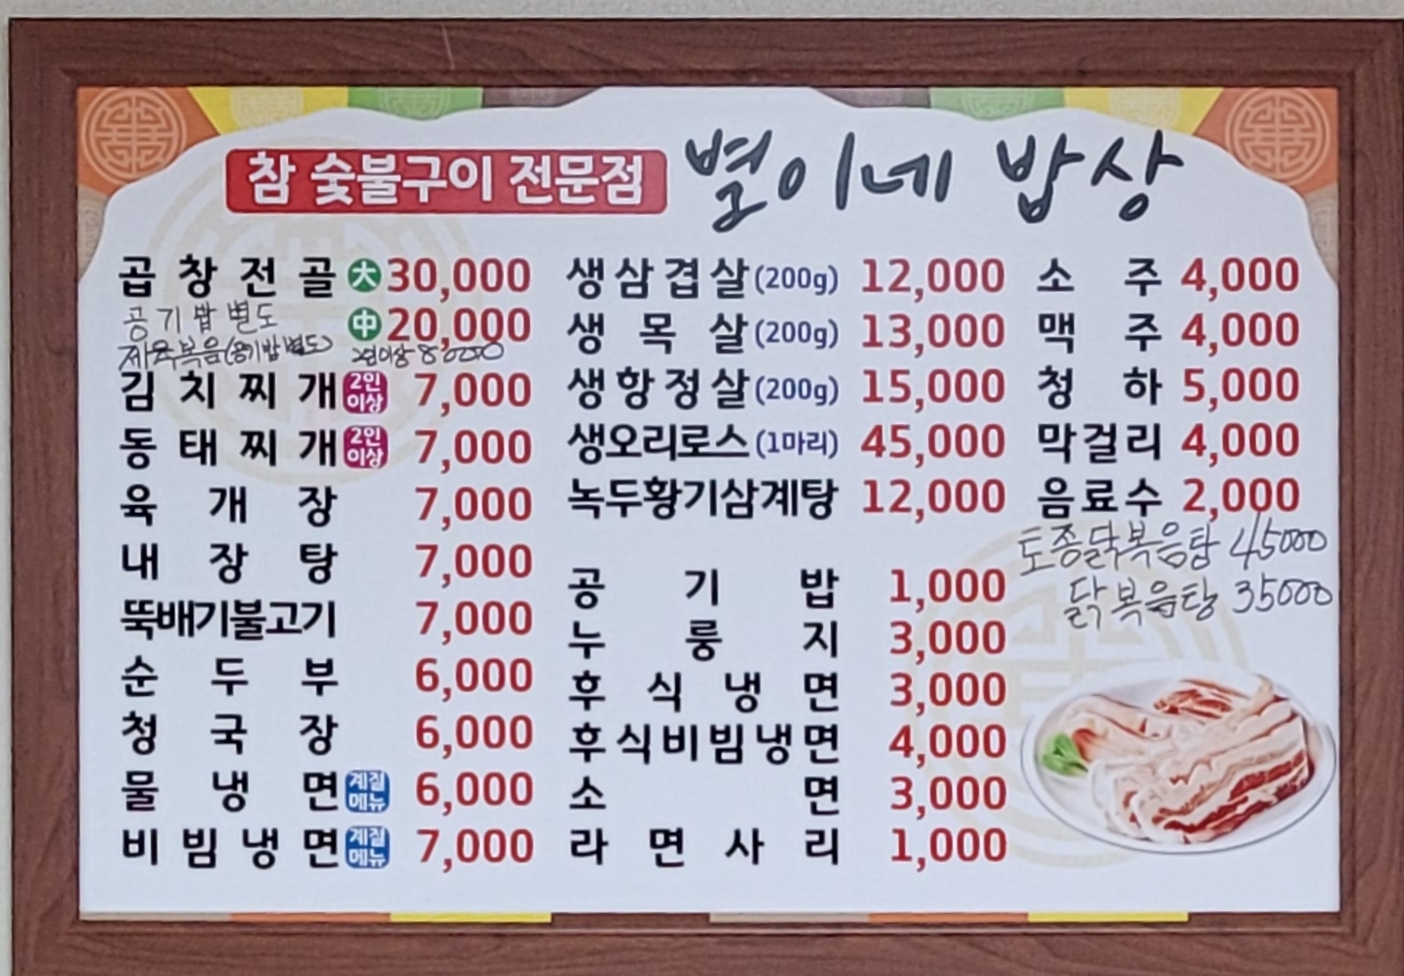 참 숯불구이 전문점 별이네 밥상
곱창전골 大 30,000
공기밥 별도 中 20,000
제육복음(공기밥별도) 2인이상 8000
김치찌개 2인이상 7,000
동태찌개 2인이상 7,000
육개장 7,000
내장탕 7,000
뚝배기불고기 7,000
순두부 6,000
청국장 6,000
물냉면 계절메뉴 6,000
비빔냉면 계절메뉴 7,000
생삼겹살(200g) 12,000
생목살(200g) 13,000
생항정살(200g) 15,000
생오리로스(1마리) 45,000
녹두황기삼계탕 12,000
공기밥 1,000
누룽지 3,000
후식냉면 3,000
후식비빔냉면 4,000
소면 3,000
라면사리 1,000
소주 4,000
맥주 4,000
청하 5,000
막걸리 4,000
음료수 2,000
토종닭복음탕 45000
닭복음탕 35000